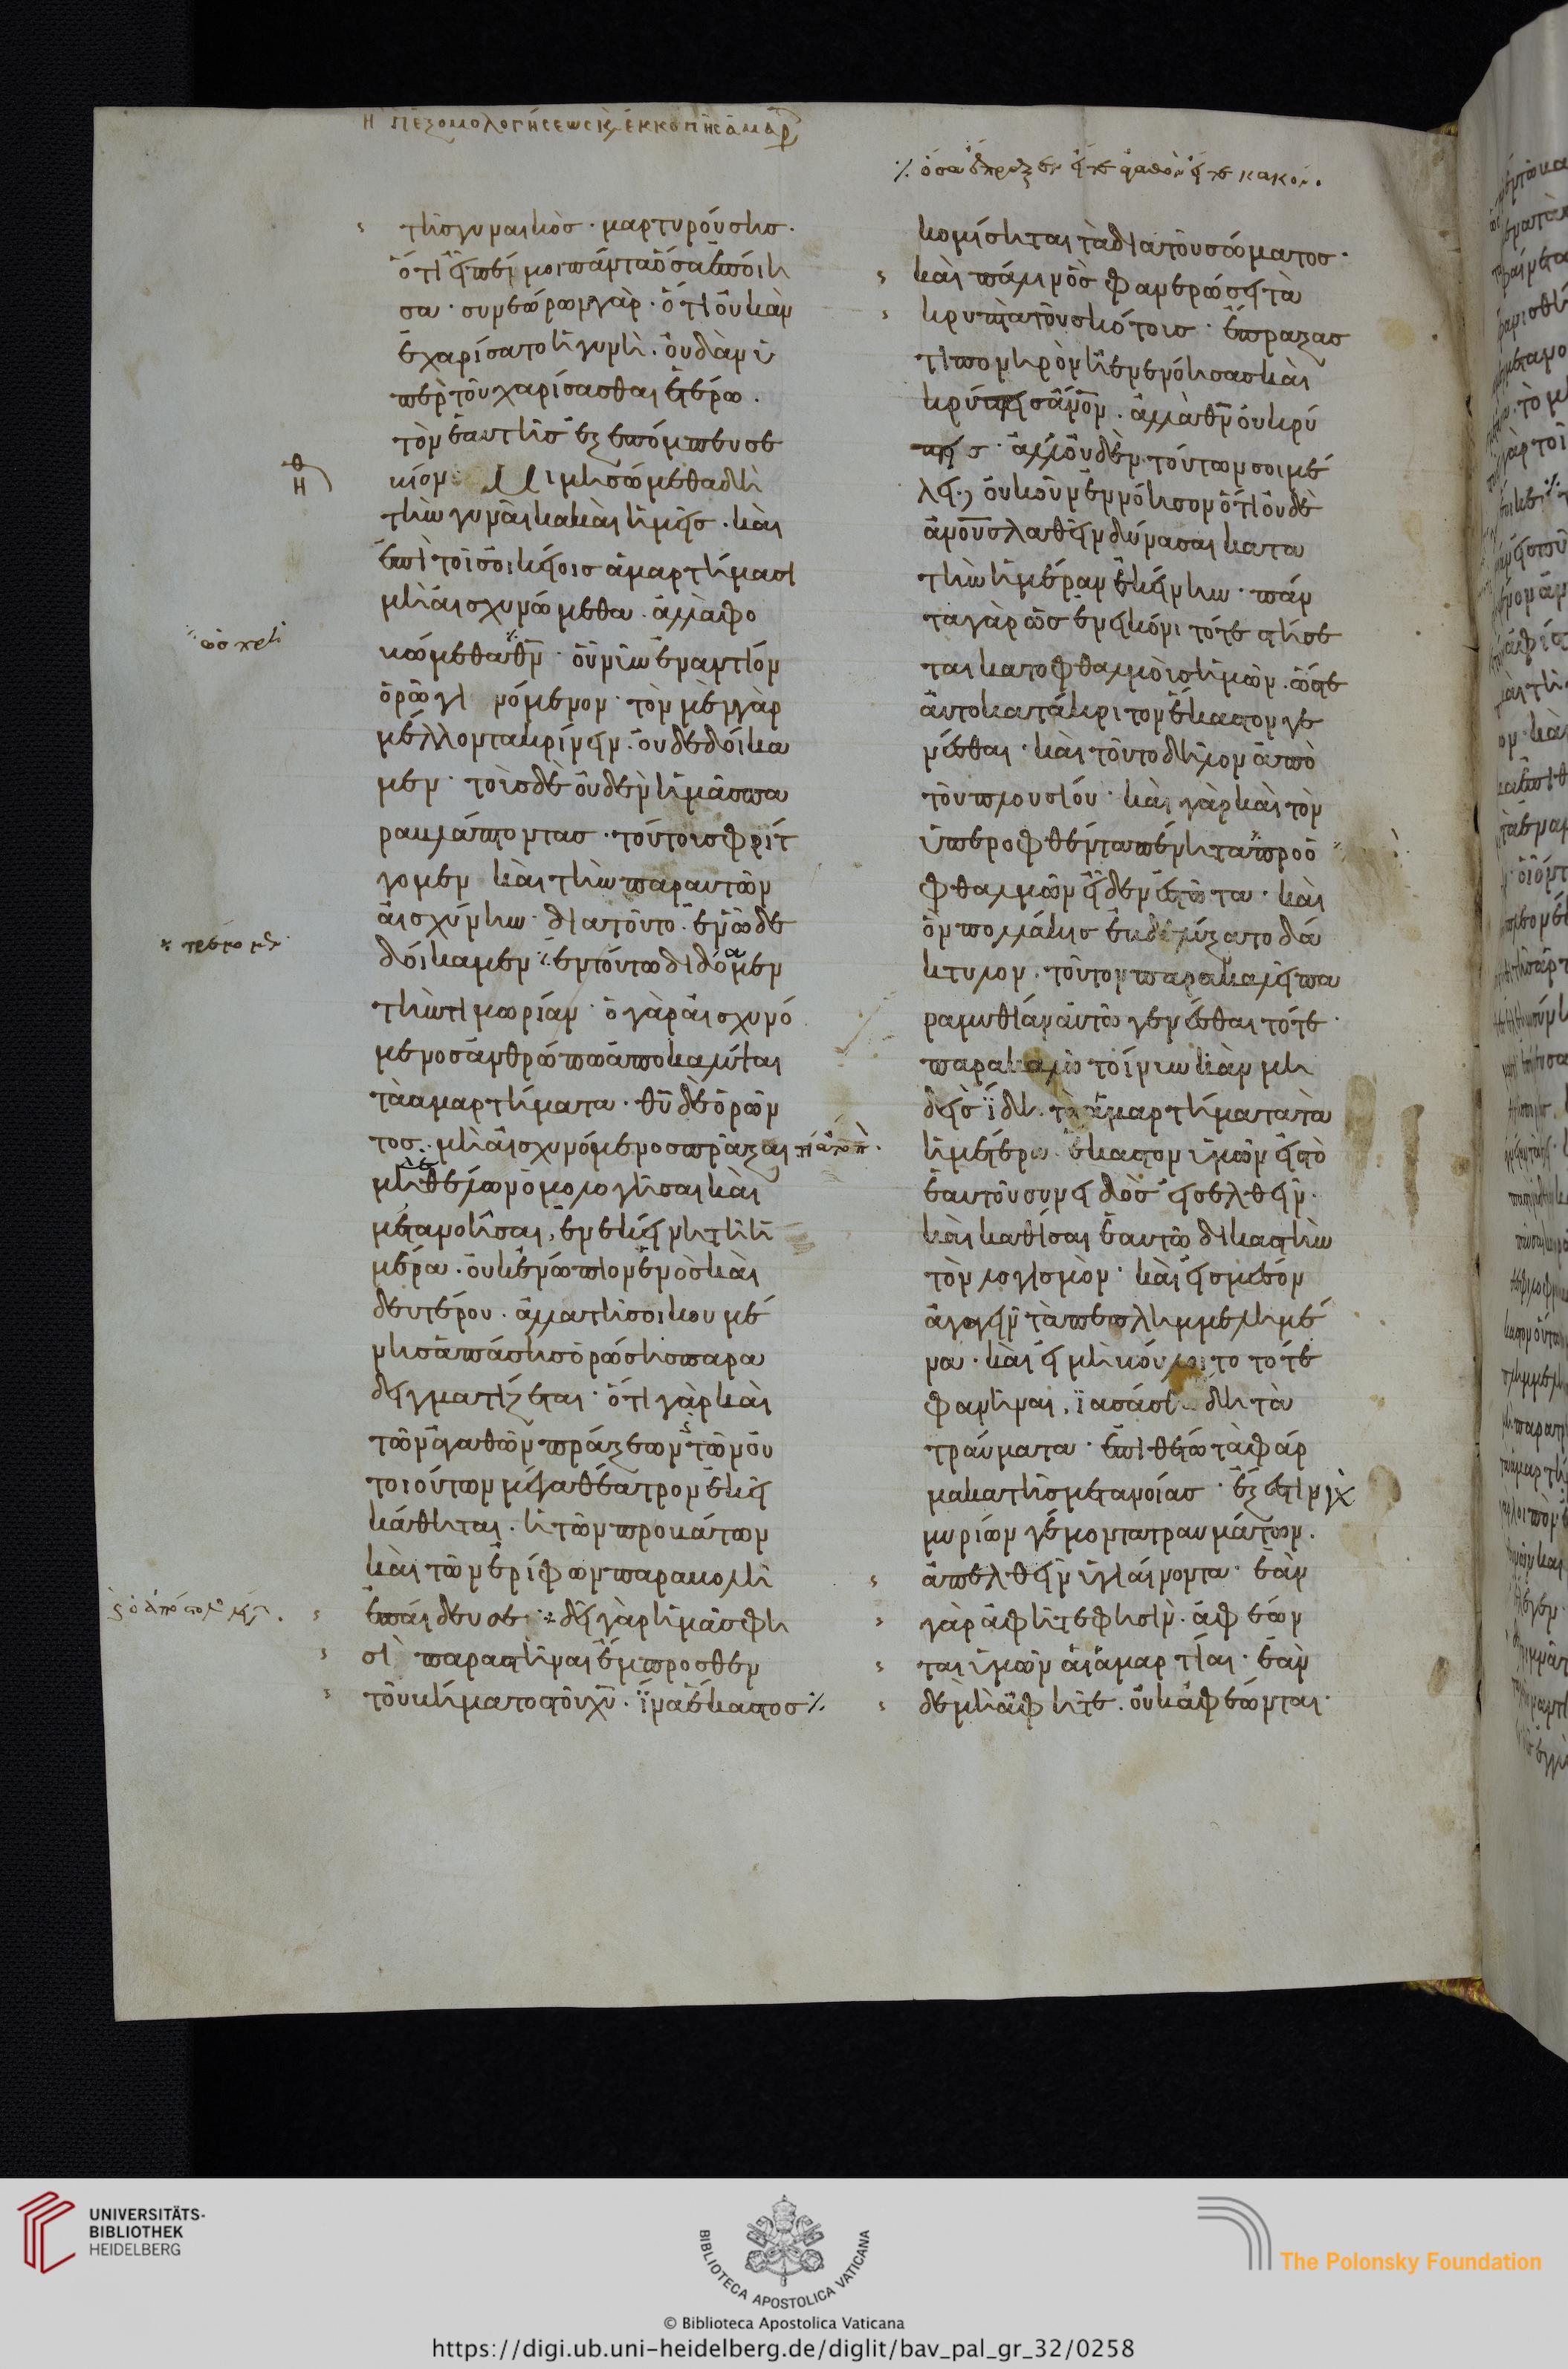 Η ΠΕΞΟΜΟΛΟΓΗΣΕΩΣ Κ, ΕΚΚΟΠΗΣ ΑΜΑΡ
τῆς γυναικὸς · μαρτυρούσης ·
ὅτι εἶπέ μοι πάντα ὅσα ἐποίη
σα · συνεώρων γὰρ · ὅτι οὐκ ἂν
ἐχαρίσατο ἡ γυνὴ · οὐδ' ἂν ὑ
πὲρ τοῦ χαρίσασθαι ἑτέρω ·
τὸν ἑαυτῆς ἐξεπόμπευσε
βίον · Μιμησώμεθα δὴ
τὴν γυναῖκα καὶ ἡμεῖς · καὶ
ἐπὶ τοῖς οἰκείοις ἁμαρτήμασι
μὴ αἰσχυνώμεθα · ἀλλὰ φο
βώμεθα θν · οὐ μὴν ἐναντίον
ὁρῶ γινόμενον · τὸν μὲν γὰρ
μέλλοντα κρίνειν · οὐ δεδοίκα
μεν · τοῖς δὲ οὐδὲν ἡμᾶς πα
ραβλάπτοντας · τούτοις φρίτ
τομεν καὶ τὴν παρ αυτῶν
αἰσχύνην · διατοῦτο · ἐν ὧ δε
δοίκαμεν · ἐν τούτω διδόαμεν
τὴν τιμωρίαν · ὁ γὰρ αἰσχυνό
μενος ἀνθρώπω ἀποκαλύψαι
τὰ ἁμαρτήματα · θῦ δὲ ὁρῶν
τος · μὴ αἰσχυνόμενος πρᾶξαι
μὴ δὲ θέλων ὁμολογῆσαι καὶ
μετανοῆσαι, ἐν ἐκείνη τῆ ἡ
μέρα · οὐκ ἐνώπιον ἑνὸς καὶ
δευτέρου · ἀλλὰ τῆς οἰκουμέ
νης ἁπάσης ὁρώσης παρα
δειγματίζεται · ὅτι γὰρ καὶ
τῶν ἀγαθῶν πράξεων τῶν οὐ
τοιούτων μέγα θέατρον ἐκεῖ
κάθηται · ἡ τῶν προβάτων
καὶ τῶν ἐρίφων παραβολὴ
ἐπαίδευσε · δεῖ γὰρ ἡμᾶς φη
σὶ παραστῆναι ἔμπροσθεν
τοῦ βήματος τοῦ χῦ · ἵνα ἕκαστος ⁒
⁒ ὅσα ἔπραξεν εἴτε ἀγαθὸν εἴτε κακόν ·
κομίσηται τὰ διὰ τοῦ σώματος ·
καὶ πάλιν ὃς φανερώσει τὰ
κρυπτὰ τοῦ σκότους · ἔπραξας
τι πονηρὸν ἢ ἐνενόησας καὶ
κρύπτεις ἀνον · ἀλλὰ θν οὐ κρύ
πτεις · ἀλλ' οὐδὲν τούτων σοι μέ
λει, οὐκοῦν ἐννόησον ὅτι οὐδὲ
ἀνους λαθεῖν δύνασαι κατὰ
τὴν ἡμέραν ἐκείνην · πάν
τα γὰρ ὡς ἐν εἰκόνι τότε στήσε
ται κατ ὀφθαλμοὺς ἡμῶν · ὥστε
αὐτοκατάκριτον ἕκαστον γε
νέσθαι · καὶ τοῦτο δῆλον ἀπὸ
τοῦ πλουσίου · καὶ γὰρ καὶ τὸν
ὑπεροφθέντα πένητα πρὸ ὀ
φθαλμῶν εἶδεν ἑστῶτα · καὶ
ὃν πολλάκις ἐβδελύξατο δά
κτυλον · τοῦτον παρακαλεῖ πα
ραμυθίαν αὐτῶ γενέσθαι τότε ·
παρακαλῶ τοίνυν κἂν μη
δεὶς ἴδη τὰ ἁμαρτήματα τὰ
ἡμέτερα · ἕκαστον ὑμῶν εἰς τὸ
ἑαυτοῦ συνειδὸς εἰσελθεῖν ·
καὶ καθίσαι ἑαυτῶ δικαστὴν
τὸν λογισμὸν · καὶ εἰς μέσον
ἀγαγεῖν τὰ πεπλημμελημέ
να · καὶ εἰ μὴ βούλοιτο τότε
φανῆναι, ἰασάσθω δὴ τὰ
τραύματα · ἐπιθέτω τὰ φάρ
μακα τῆς μετανοίας · ἔξεστιν γὰρ
μυρίων γέμοντα τραυμάτων ·
ἀπελθεῖν ὑγιαίνοντα · ἐὰν
γὰρ ἀφῆτε φησὶν · ἀφεών
ται ὑμῶν αἱ ἁμαρτίαι · ἐὰν
δὲ μὴ ἀφῆτε · οὐκ ἀφέωνται ·
UNIVERSITÄTS-
BIBLIOTHEK
HEIDELBERG
BIBLIOTECA APOSTOLICA VATICANA
The Polonsky Foundation
© Biblioteca Apostolica Vaticana
https://digi.ub.uni-heidelberg.de/diglit/bav_pal_gr_32/0258